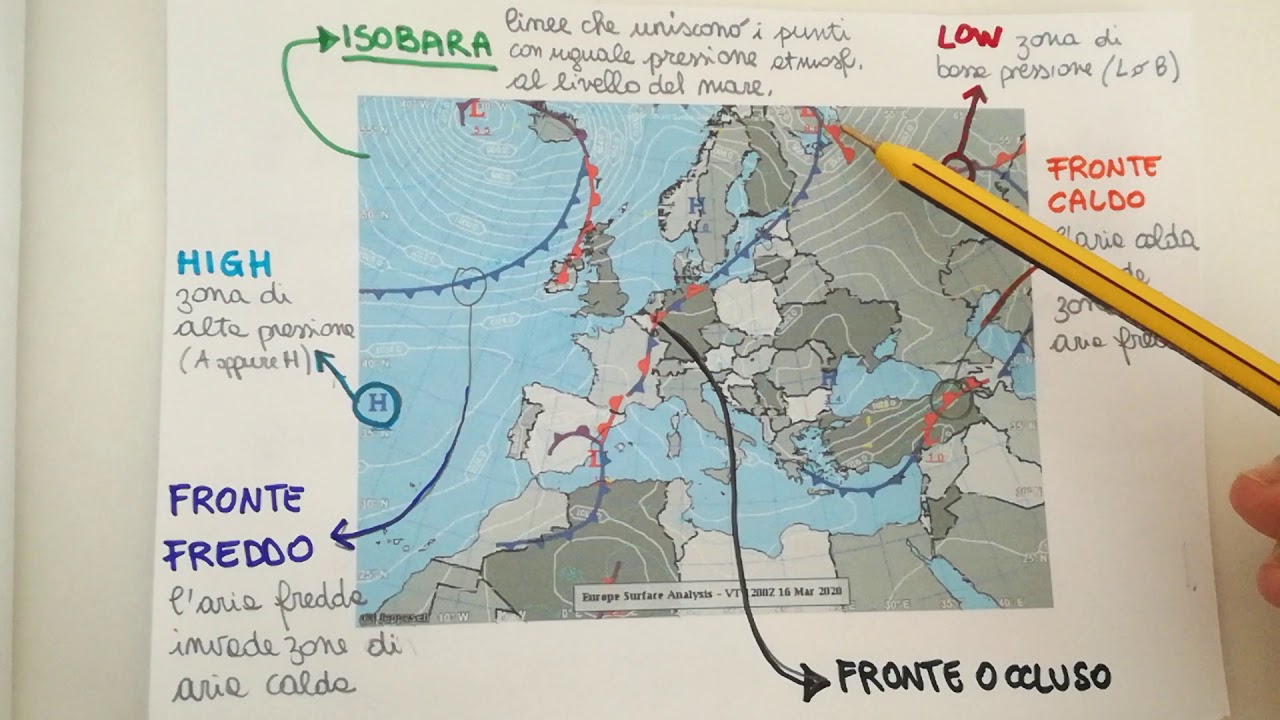 ISOBARA
linee che uniscono i punti
con uguale pressione atmosf.
al livello del mare.
LOW zona di
bassa pressione (L o B)
FRONTE
CALDO
l'aria calda
zon
aria fred
HIGH
zona di
alta pressione
(A oppure H)
H
L
L
H
H
L
L
FRONTE
FREDDO
l'aria fredda
invade zone di
aria calda
Europe Surface Analysis - VT 1200Z 16 Mar 2020
FRONTE OCCLUSO